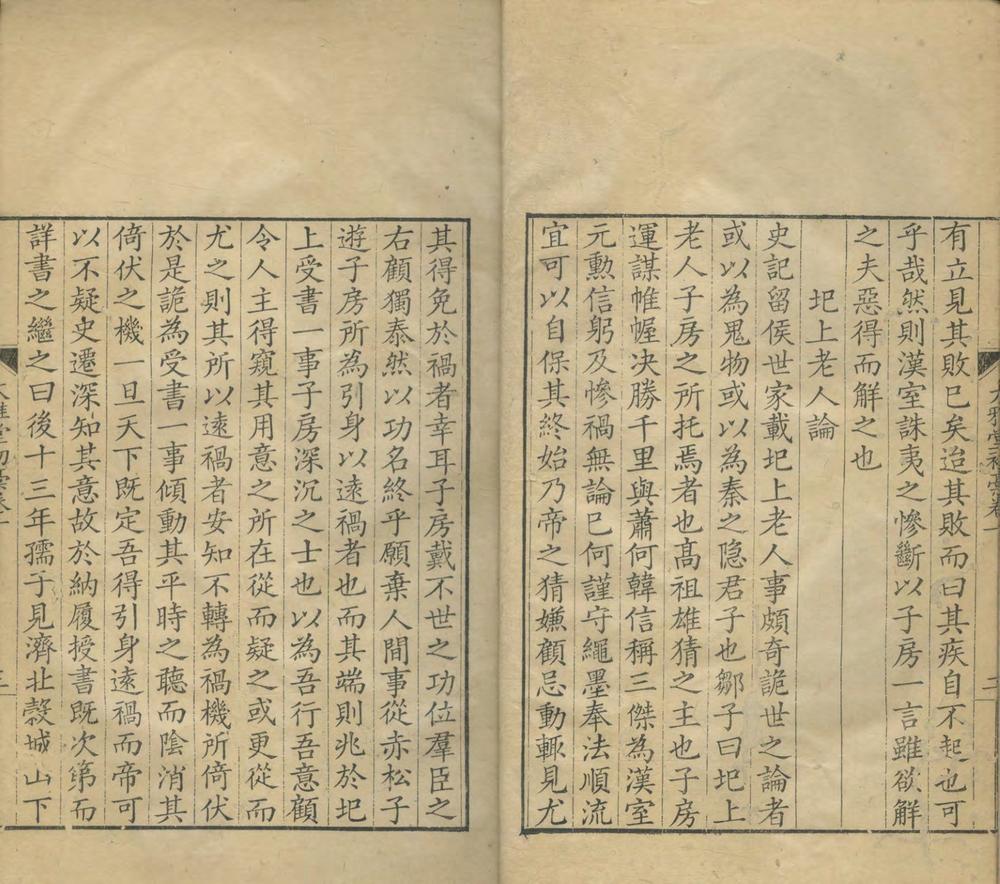 有立見其敗已矣迨其敗而曰其疾自不起也可
乎哉然則漢室誅夷之慘斷以子房一言雖欲解
之夫惡得而解之也
圯上老人論
史記留侯世家載圯上老人事頗奇詭世之論者
或以為鬼物或以為秦之隐君子也鄒子曰圯上
老人子房之所托焉者也髙祖雄猜之主也子房
運謀帷幄决勝千里與蕭何韓信稱三傑為漢室
元勳信躬及慘禍無論已何謹守繩墨奉法順流
宜可以自保其終始乃帝之猜嫌顧忌動輙見尤
其得免於禍者幸耳子房戴不世之功位羣臣之
右顧獨泰然以功名終乎願棄人間事從赤松子
遊子房所為引身以遠禍者也而其端則兆於圯
上受書一事子房深沉之士也以為吾行吾意顧
令人主得窺其用意之所在從而疑之或更從而
尤之則其所以遠禍者安知不轉為禍機所倚伏
於是詭為受書一事傾動其平時之聽而陰消其
倚伏之機一旦天下既定吾得引身遠禍而帝可
以不疑史遷深知其意故於納履授書既次第而
詳書之繼之曰後十三年孺子見濟北穀城山下